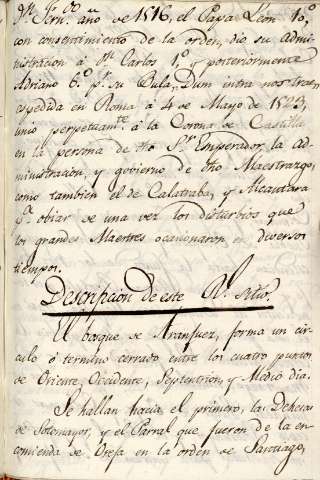 Dn. Fern.do año de 1516, el Papa Leon 10.º
con consentimiento de la orden, dio su admi-
nistracion á Dn. Carlos 1.º, y posteriormente
Adriano 6.º pr. su Bula, Dum intra nos trae,
expedida en Roma á 4 de Mayo de 1523,
unio perpetuam.te á la Corona de Castilla
en la persona de dho Sr. Emperador, la ad-
ministracion, y gobierno de dho Maestrazgo,
como tambien el de Calatraba, y Alcantara
pa. obiar de una vez los disturbios que
los grandes Maestres ocasionaron en diversos
tiempos.
Descripcion de este Rl. Sitio.
El bosque de Aranjuez, forma un cir-
culo ó termino cerrado entre los cuatro puntos
de Oriente, Occidente, Septentrion, y Medio dia.
Se hallan hacia el primero, las Dehesas
de Sotomayor, y el Parral que fueron de la en-
comienda de Oreja en la orden de Santiago,